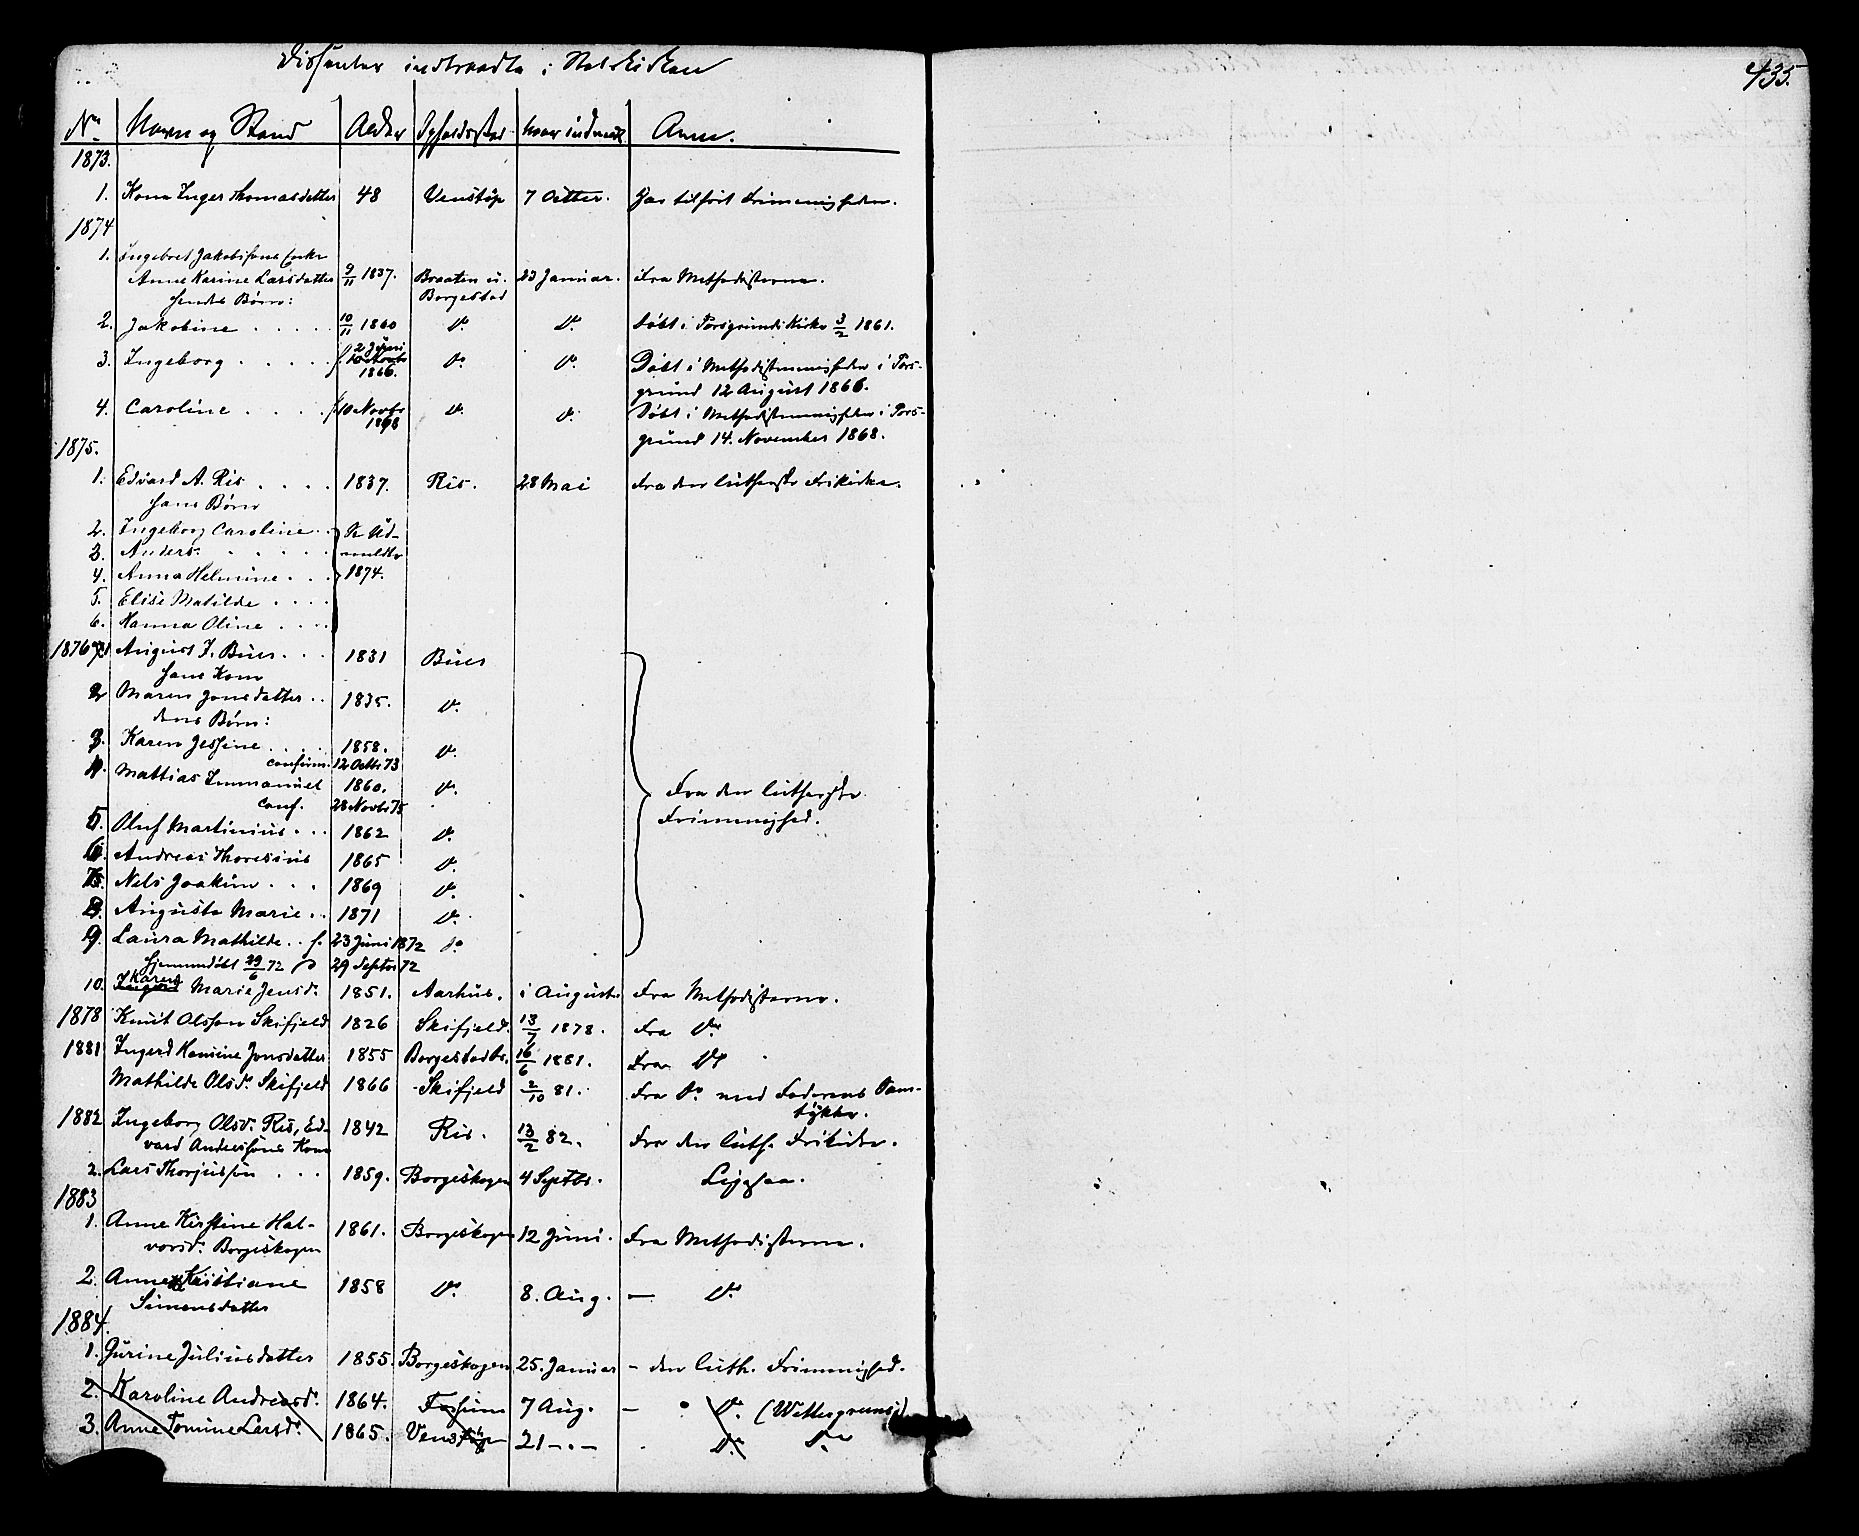 Dissenter indtraadte i Statskirken
435.
No Navn og Stand Alder Opholdssted naar indmeldt Anm.
1873.
1. Kone Inger Thomasdatter 48 Venstöp 7 Octbr. Har tilhørt Frimenigheden.
1874
1. Ingebret Jakobsens Enke
Anne Karine Larsdatter 9/11 1837. Braaten u. Borgestad 23 Januar. Fra Methodisterne.
hendes Børn:
2. Jakobine 10/11 1860 Do. Do. Døbt i Porsgrunds Kirke 3/2 1861.
3. Ingeborg f. 2 Juni 1866. Do. Do. Døbt i Methodistmenigheden i Pors-
grund 12 August 1866.
4. Caroline f. 10 Novbr 1868 Do. Do. Døbt i Methodistmenigheden i Pors-
grund 14. November 1868.
1875.
1. Edvard A. Ris 1837. Ris. 28 Mai Fra den lutherske Frikirke.
hans Børn
2. Ingeborg Caroline Se Ud-
3. Anders meldte
4. Anna Helmine 1874.
5. Elise Matilde
6. Hanna Oline
1876 1 August J. Bues 1831 Bues
hans Kone
2 Maren Jonsdatter 1835. Do.
dens Børn:
3. Karen Jessine 1858. Do.
confirm. 12 Octbr 73
4. Mattias Immanuel 1860. Do.
conf. 28 Novbr 75
Fra den lutherske
Frimenighed.
5. Oluf Martinius 1862 Do.
6. Andreas Thoresius 1865 Do.
7. Nels Joakim 1869 Do.
8. Augusta Marie 1871 Do.
9. Laura Mathilde f. 23 Juni 1872 Do
hjemmedøbt 29/6 72 29 Septbr 72
10. Karen Marie Jensd. 1851. Aarhus. i August Fra Methodisterne.
1878 Knut Olsson Skifjeld 1826 Skifjeld. 13/7 1878. Fra Do
1881 Ingerd Hamine Jonsdatter 1855 Borgestadbr. 16/6 1881. Fra Do
Mathilde Olsd. Skifjeld 1866 Skifjeld 2/10 81. Fra Do med Faderens Sam-
tykke.
1882 Ingeborg Olsd. Ris, Ed- 1842 Ris. 13/2 82. Fra den luth. Frikirke.
vard Anderssöns Kone
2. Lars Thorjussen 1859. Borgeskogen 4 Septbr. Ligesaa.
1883
1. Anne Kirstine Hal- 1861. Borgeskogen 12 Juni. Fra Methodisterne.
vorsd. Borgeskogen
2. Anne Kristiane 1858 Do. 8. Aug. — Do
Simonsdatter
1884.
1. Gurine Juliusdatter 1855. Borgeskogen 25. Januar - den luth. Frimenighed.
2. Karoline Andreasd. 1864. Fossum 7 Aug. — Do. (Wettergreens)
3. Anne Tomine Larsd. 1865. Venstöp 21 — . — Do. Do